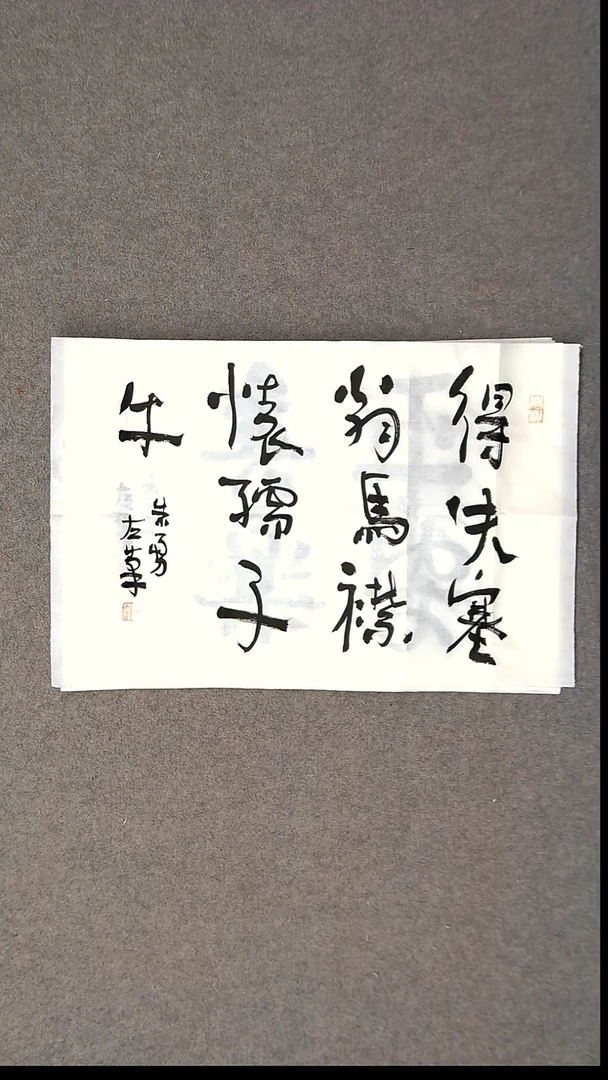 得失塞
翁馬襟
懷孺子
牛
朱勇
左筆